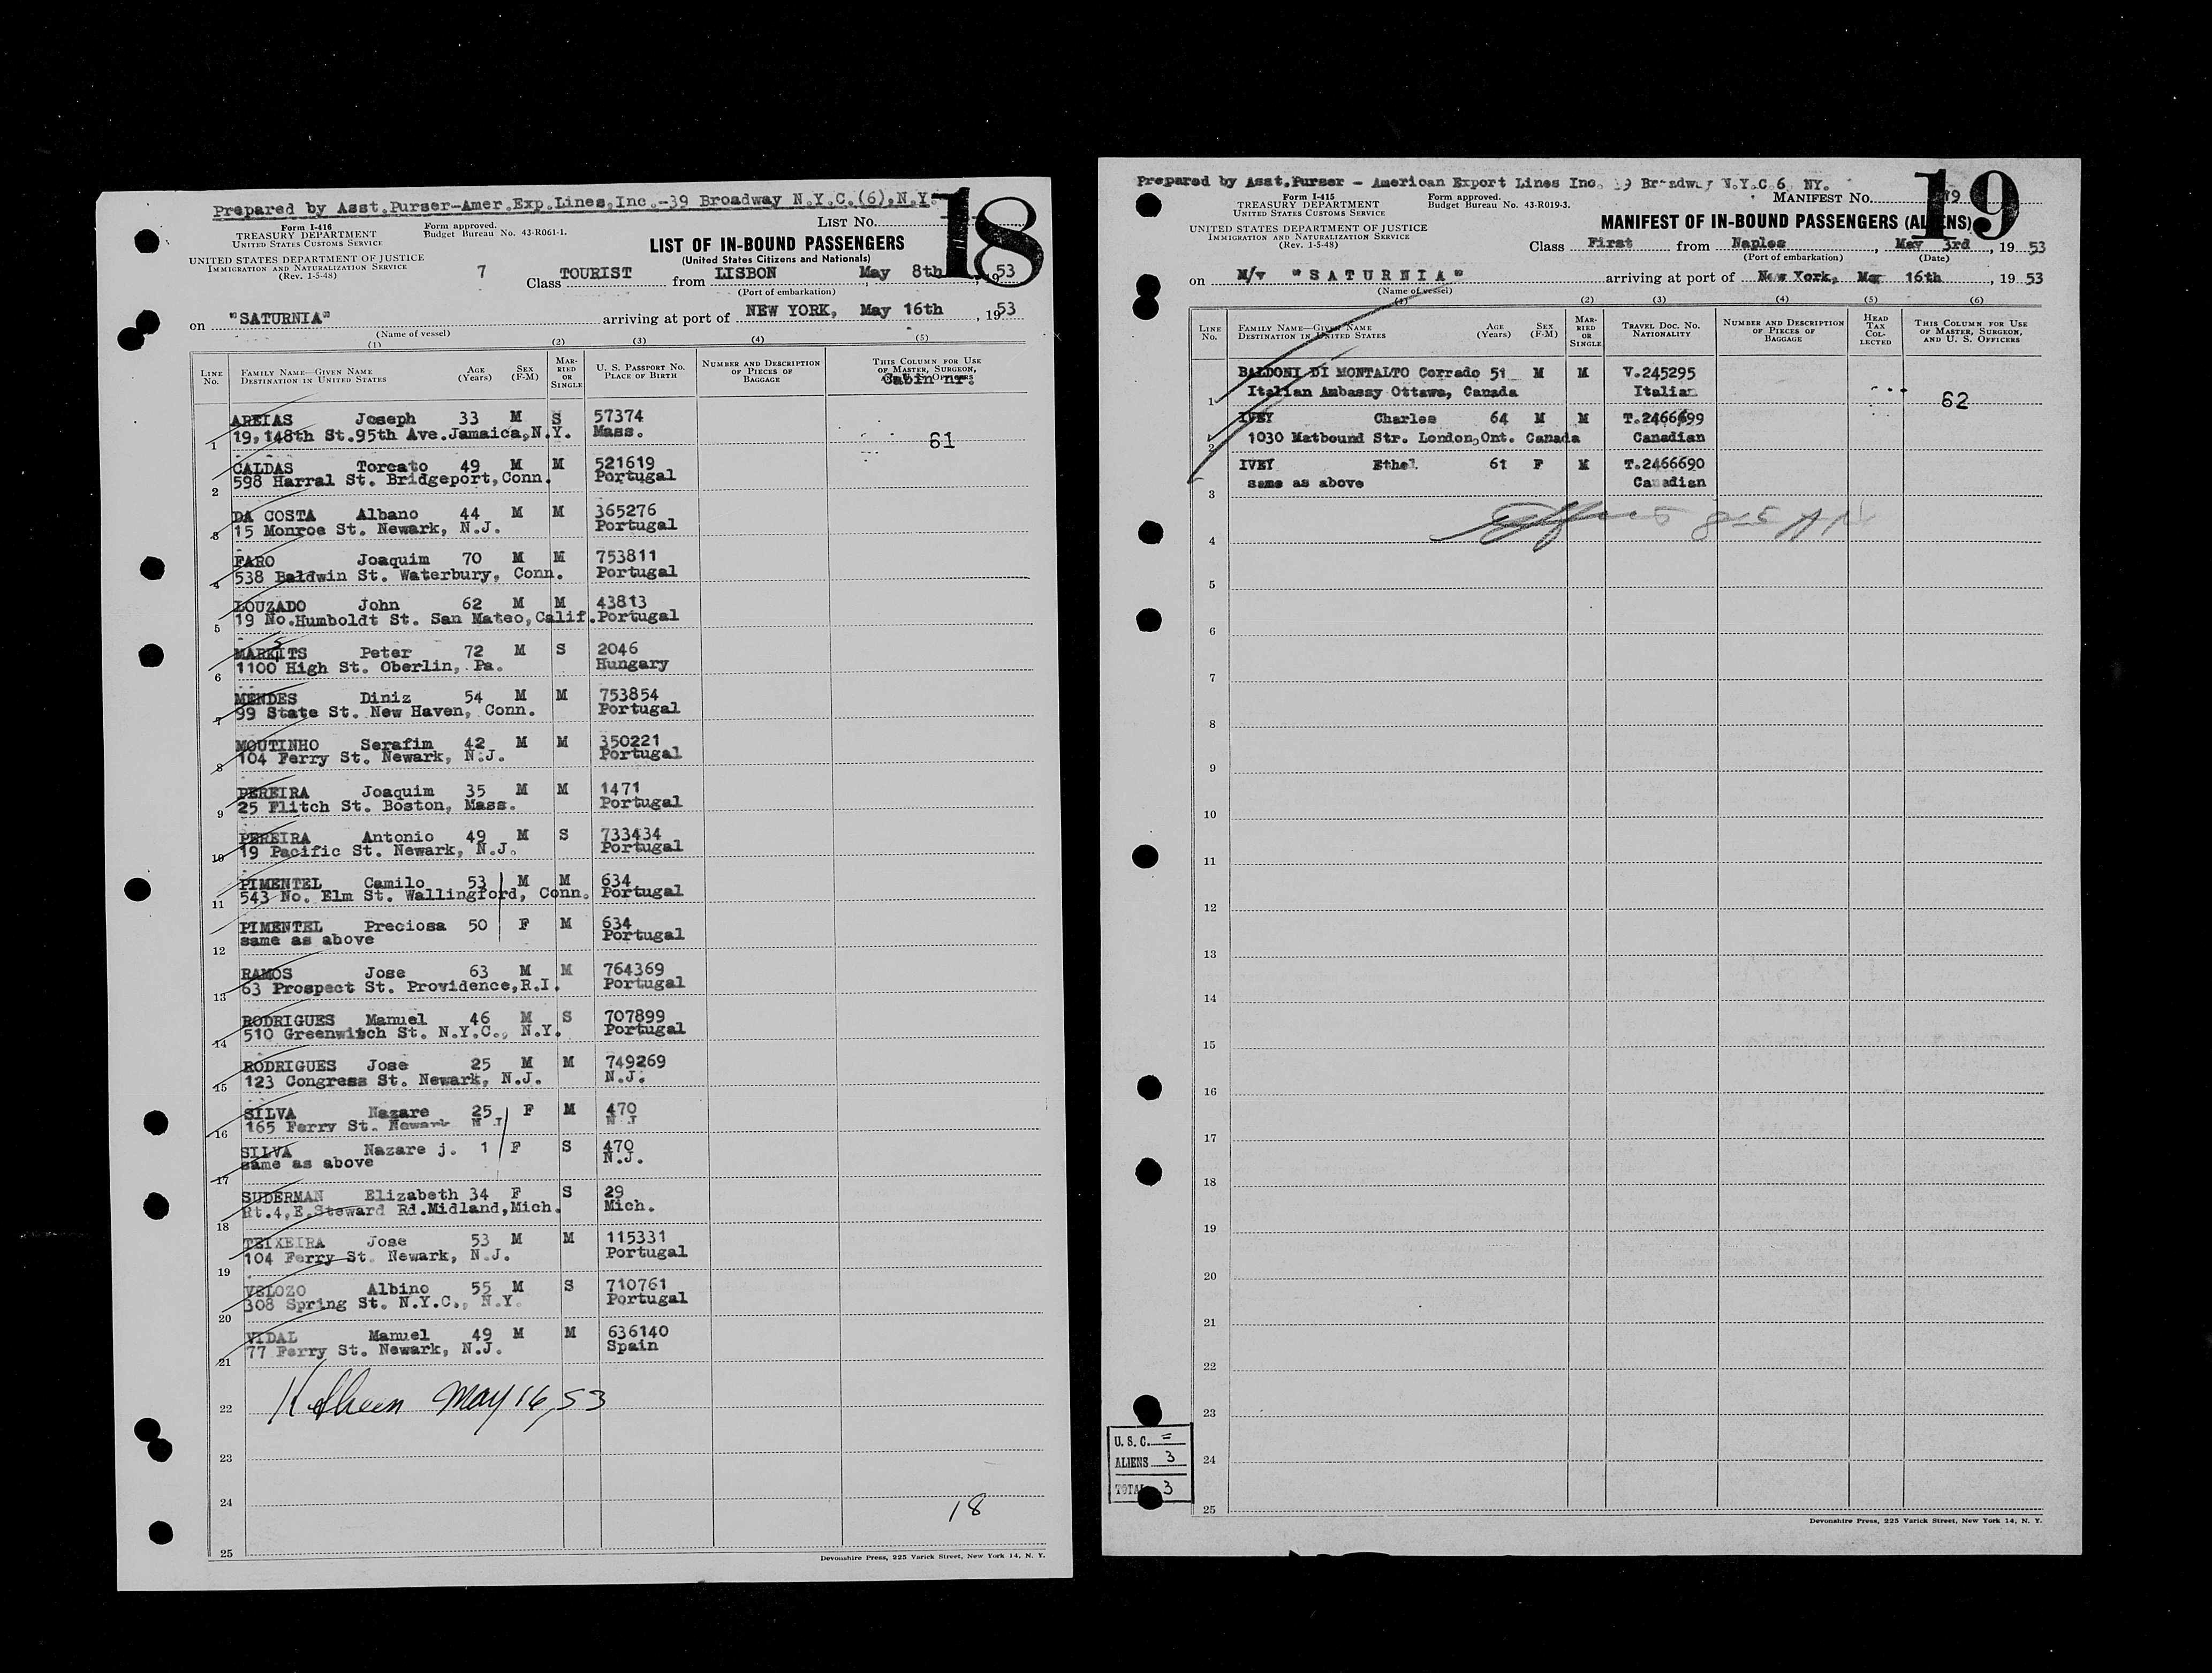 Prepared by Asst.Purser-Amer.Exp.Lines,Inc.-39 Broadway N.Y.C.(6),N.Y.
18
Form I-416
TREASURY DEPARTMENT
UNITED STATES CUSTOMS SERVICE
Form approved.
Budget Bureau No. 43-R061-1.
LIST No.
UNITED STATES DEPARTMENT OF JUSTICE
IMMIGRATION AND NATURALIZATION SERVICE
(Rev. 1-5-48)
LIST OF IN-BOUND PASSENGERS
(United States Citizens and Nationals)
7 Class TOURIST from LISBON May 8th 1953
(Port of embarkation)
on "SATURNIA" arriving at port of NEW YORK, May 16th, 1953
(Name of vessel)
(1) (2) (3) (4) (5)
LINE No. FAMILY NAME—GIVEN NAME DESTINATION IN UNITED STATES AGE (Years) SEX (F-M) MARRIED OR SINGLE U. S. PASSPORT No. PLACE OF BIRTH NUMBER AND DESCRIPTION OF PIECES OF BAGGAGE THIS COLUMN FOR USE OF MASTER, SURGEON,
Cabin nr.
AREIAS Joseph 33 M S 57374
1 19,148th St.95th Ave.Jamaica,N.Y. Mass. 61
CALDAS Torcato 49 M M 521619
2 598 Harral St. Bridgeport,Conn. Portugal
DA COSTA Albano 44 M M 365276
3 15 Monroe St. Newark, N.J. Portugal
FARO Joaquim 70 M M 753811
4 538 Baldwin St. Waterbury, Conn. Portugal
LOUZADO John 62 M M 43813
5 19 No.Humboldt St. San Mateo,Calif. Portugal
Peter 72 M S 2046
6 1100 High St. Oberlin, Pa. Hungary
MENDES Diniz 54 M M 753854
7 99 State St. New Haven, Conn. Portugal
MOUTINHO Serafim 42 M M 350221
8 104 Ferry St. Newark, N.J. Portugal
PEREIRA Joaquim 35 M M 1471
9 25 Flitch St. Boston, Mass. Portugal
PEREIRA Antonio 49 M S 733434
10 19 Pacific St. Newark, N.J. Portugal
PIMENTEL Camilo 53 M M 634
11 543 No. Elm St. Wallingford, Conn. Portugal
PIMENTEL Preciosa 50 F M 634
12 same as above Portugal
RAMOS Jose 63 M M 764369
13 63 Prospect St. Providence,R.I. Portugal
RODRIGUES Manuel 46 M S 707899
14 510 Greenwitch St. N.Y.C., N.Y. Portugal
RODRIGUES Jose 25 M M 749269
15 123 Congress St. Newark, N.J. N.J.
SILVA Nazare 25 F M 470
16 165 Ferry St. Newark N J N J
SILVA Nazare j. 1 F S 470
17 same as above N.J.
SUDERMAN Elizabeth 34 F S 29
18 Rt.4,E.Steward Rd.Midland,Mich. Mich.
TEIXEIRA Jose 53 M M 115331
19 104 Ferry St. Newark, N.J. Portugal
VELOZO Albino 55 M S 710761
20 308 Spring St. N.Y.C., N.Y. Portugal
VIDAL Manuel 49 M M 636140
21 77 Ferry St. Newark, N.J. Spain
22 May 16, 53
23
24 18
25
Devonshire Press, 225 Varick Street, New York 14, N. Y.
Prepared by Asst.Purser - American Export Lines Inc. 39 Broadway N.Y.C 6 NY.
19
Form I-415
TREASURY DEPARTMENT
UNITED STATES CUSTOMS SERVICE
Form approved.
Budget Bureau No. 43-R019-3.
MANIFEST No. 19
UNITED STATES DEPARTMENT OF JUSTICE
IMMIGRATION AND NATURALIZATION SERVICE
(Rev. 1-5-48)
MANIFEST OF IN-BOUND PASSENGERS (ALIENS)
Class First from Naples, May 3rd, 1953
(Port of embarkation) (Date)
on M/v "SATURNIA" arriving at port of New York, May 16th, 1953
(Name of vessel)
(1) (2) (3) (4) (5) (6)
LINE No. FAMILY NAME—GIVEN NAME DESTINATION IN UNITED STATES AGE (Years) SEX (F-M) MARRIED OR SINGLE TRAVEL DOC. No. NATIONALITY NUMBER AND DESCRIPTION OF PIECES OF BAGGAGE HEAD TAX COLLECTED THIS COLUMN FOR USE OF MASTER, SURGEON, AND U. S. OFFICERS
BALDONI DI MONTALTO Corrado 51 M M V.245295
1 Italian Embassy Ottawa, Canada Italian 62
IVEY Charles 64 M M T.2466699
2 1030 Matbound Str. London,Ont. Canada Canadian
IVEY Ethel 61 F M T.2466690
3 same as above Canadian
4
5
6
7
8
9
10
11
12
13
14
15
16
17
18
19
20
21
22
23
24
25
U. S. C. =
ALIENS 3
TOTAL 3
Devonshire Press, 225 Varick Street, New York 14, N. Y.